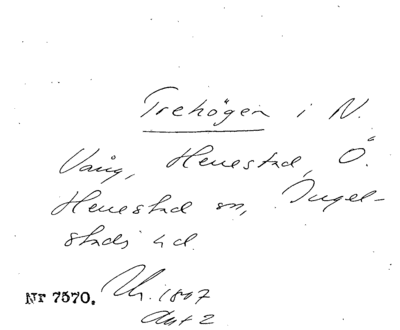 Trehögen i N.
Vång, Herrestad, Ö.
Herrestad sn, Ingel-
stads hd.
Nr 7570. 1847
Akt 2